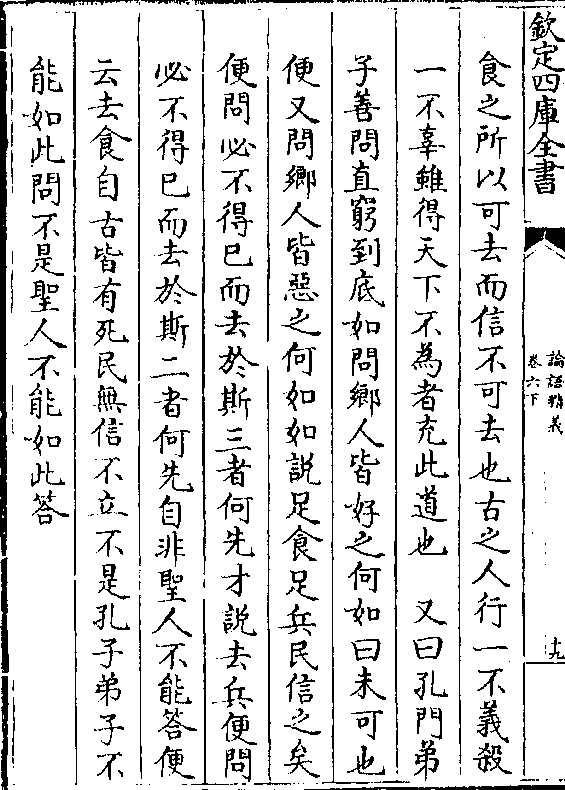 欽定四庫全書
論語精義
卷六下
十九
食之所以可去而信不可去也古之人行一不義殺
一不辜雖得天下不為者充此道也　又曰孔門弟
子善問直窮到底如問鄉人皆好之何如曰未可也
便又問鄉人皆惡之何如如說足食足兵民信之矣
便問必不得已而去於斯三者何先才說去兵便問
必不得已而去於斯二者何先自非聖人不能答便
云去食自古皆有死民無信不立不是孔子弟子不
能如此問不是聖人不能如此答